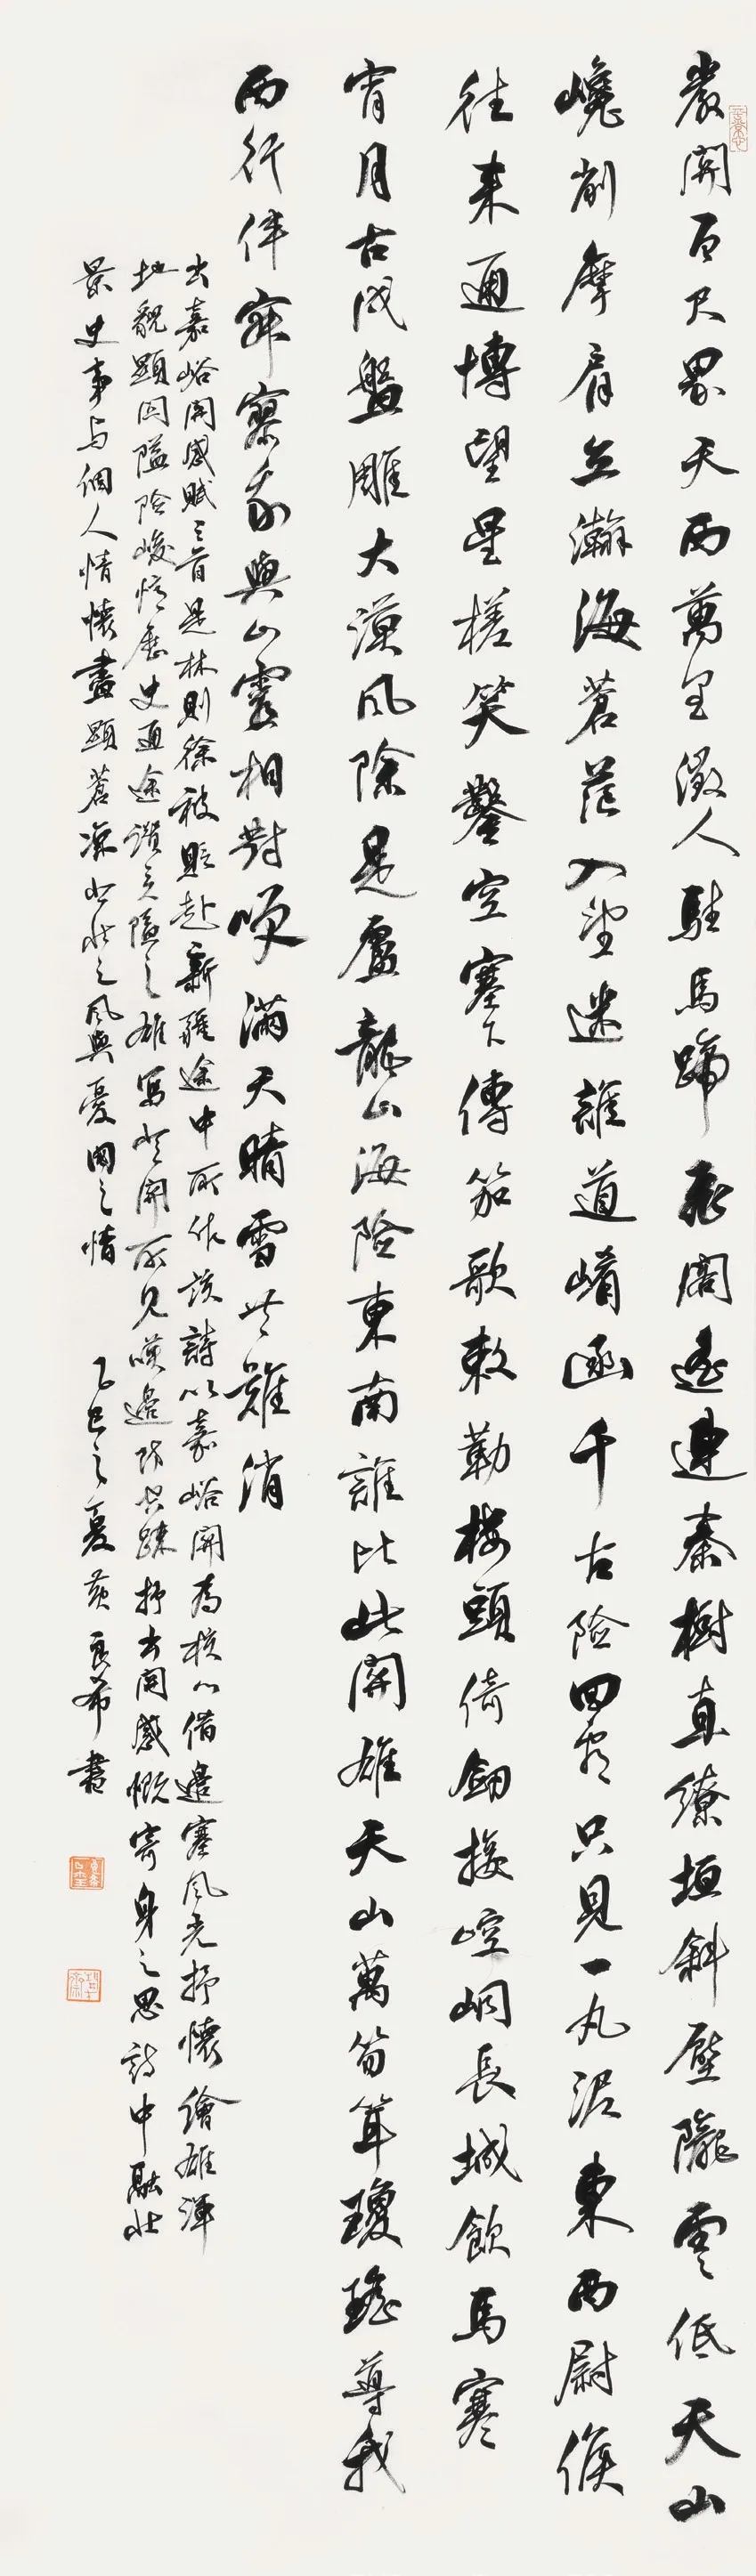 嚴關百尺界天西萬里徵人駐馬蹄飛閣遙連秦樹直繚垣斜壓隴雲低天山
巉削摩肩立瀚海蒼茫入望迷誰道崤函千古險回看只見一丸泥東西尉候
往來通博望星槎笑鑿空塞下傳笳歌敕勒樓頭倚劍接崆峒長城飲馬寒
宵月古戍盤雕大漠風除是盧龍山海險東南誰比此關雄天山萬笏聳瓊瑤導我
西行伴寂寥我與山靈相對笑滿天晴雪共難消
出嘉峪關感賦三首是林則徐被貶赴新疆途中所作該詩以嘉峪關為核心借邊塞風光抒懷繪雄渾
地貌顯因隘險峻憶歷史通途讚之隘之雄寫登關所見嘆邊防昔疎抒出關感慨寄身之思詩中融壯
景史事與個人情懷盡顯蒼涼悲壯之風與憂國之情
乙巳之夏黃良希書